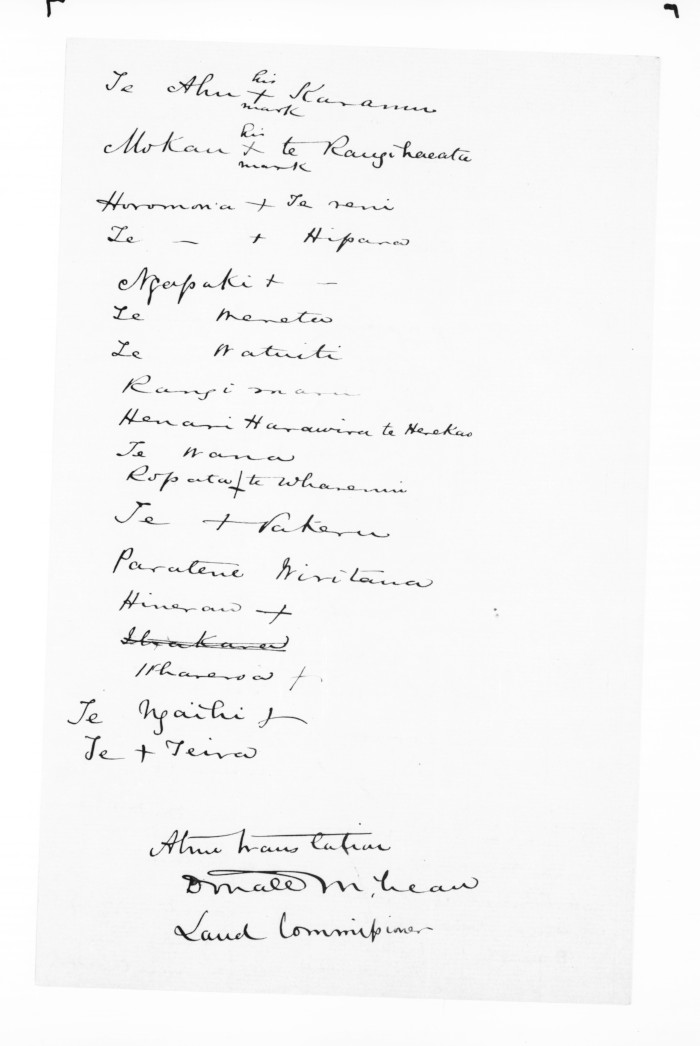 Te Ahu his + mark Karamu
Mokau his x mark te Rangihaeata
Horomona + Te reni
Te — + Hipara
Ngapaki + —
Te Meretu
Te Watuiti
Rangi maru
Henari Harawira te Herekau
Te Wana
Ropata + te Wharemui
Te + Pakeru
Paratene Wiritana
Hinerau +
Ihakara
Whareroa +
Te Ngaihi +
Te + Teira
A true translation
Donald McLean
Land Commissioner